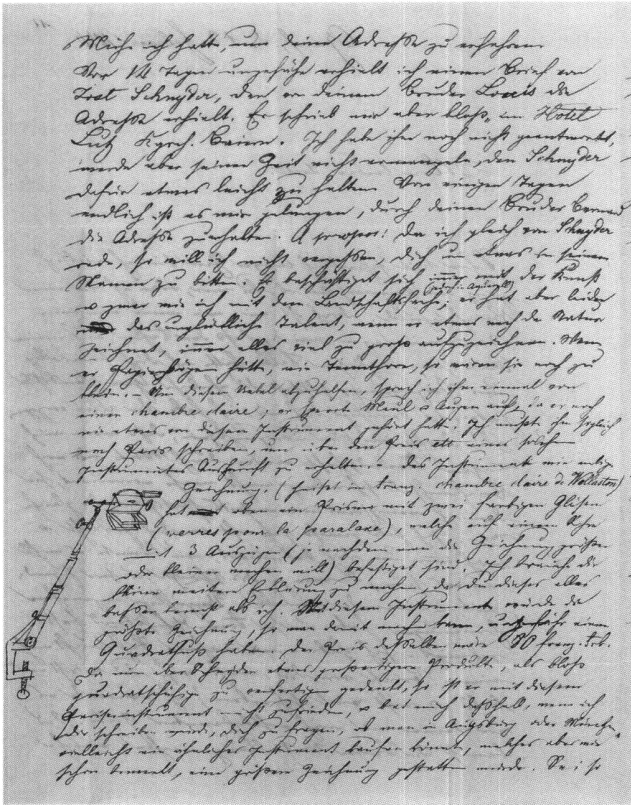 Mühe ich hatte, um deine Adresse zu erfahren.
Vor 14 Tagen ungefähr erhielt ich einen Brief von
Schnyder, den er deinem Bruder Louis die
Adresse erhielt. Er schrieb mir aber bloß, im Hotel
Lutz. Ich habe ihm noch nicht geantwortet,
werde aber seiner Zeit nicht ermangeln, den Schnyder
dafür etwas leicht zu halten. Vor einigen Tagen
endlich ist es mir gelungen, durch deinen Bruder
die Adresse zu erhalten. A propos! Da ich gleich von Schnyder
rede, so will ich nicht vergessen, dich um etwas in seinem
Namen zu bitten. Er beschäftigt sich immer mit der Kunst
wie ich mit dem Landschaftsfache; er hat aber leider
das unglückliche Talent, wenn er etwas nach der Natur
zeichnet, immer alles viel zu groß aufzuzeichnen. Wenn
er Papierbögen hätte, wie, so wären sie noch zu
klein. – Um diesem Übel abzuhelfen, sprach ich ihm einmal von
einer chambre claire, er sperrte Maul & Augen auf, da er noch
nie etwas von diesem Instrument gehört hatte. Ich mußte ihm sogleich
nach Paris schreiben, um über den Preis eines solchen
Instrumentes Auskunft zu erhalten. des Instruments
Zeichnung. (heißt in franz. chambre claire de Wollaston)
Prisma mit zwei farbigen Gläsern
(verres pour la paralaxe), welch auf einem Rohr
mit 3 Auszügen (je nachdem man die Zeichnung größer
oder kleiner machen will) befestigt sind. Ich brauche dir
keine weitere Erklärung zu machen, da du dieses alles
besser kennst als ich. Mit diesem Instrument würde die
größte Zeichnung, so man damit machen kann, ungefähr einen
Quadratfuß haben. Der Preis desselben wäre 80 franz. frb.
Da nun etwas großartigere Produkte, als bloß
quadratschuhige zu verfertigen gedenkt, so ist er mit diesem
Pariserinstrument nicht zufrieden, & bat mich deßhalb, wenn ich
dir schreiben werde, dich zu fragen, ob man in Augsburg oder München
vielleicht ein ähnliches Instrument kaufen könnte, welches aber wie
schon bemerkt, eine größere Zeichnung gestatten würde. Sei so